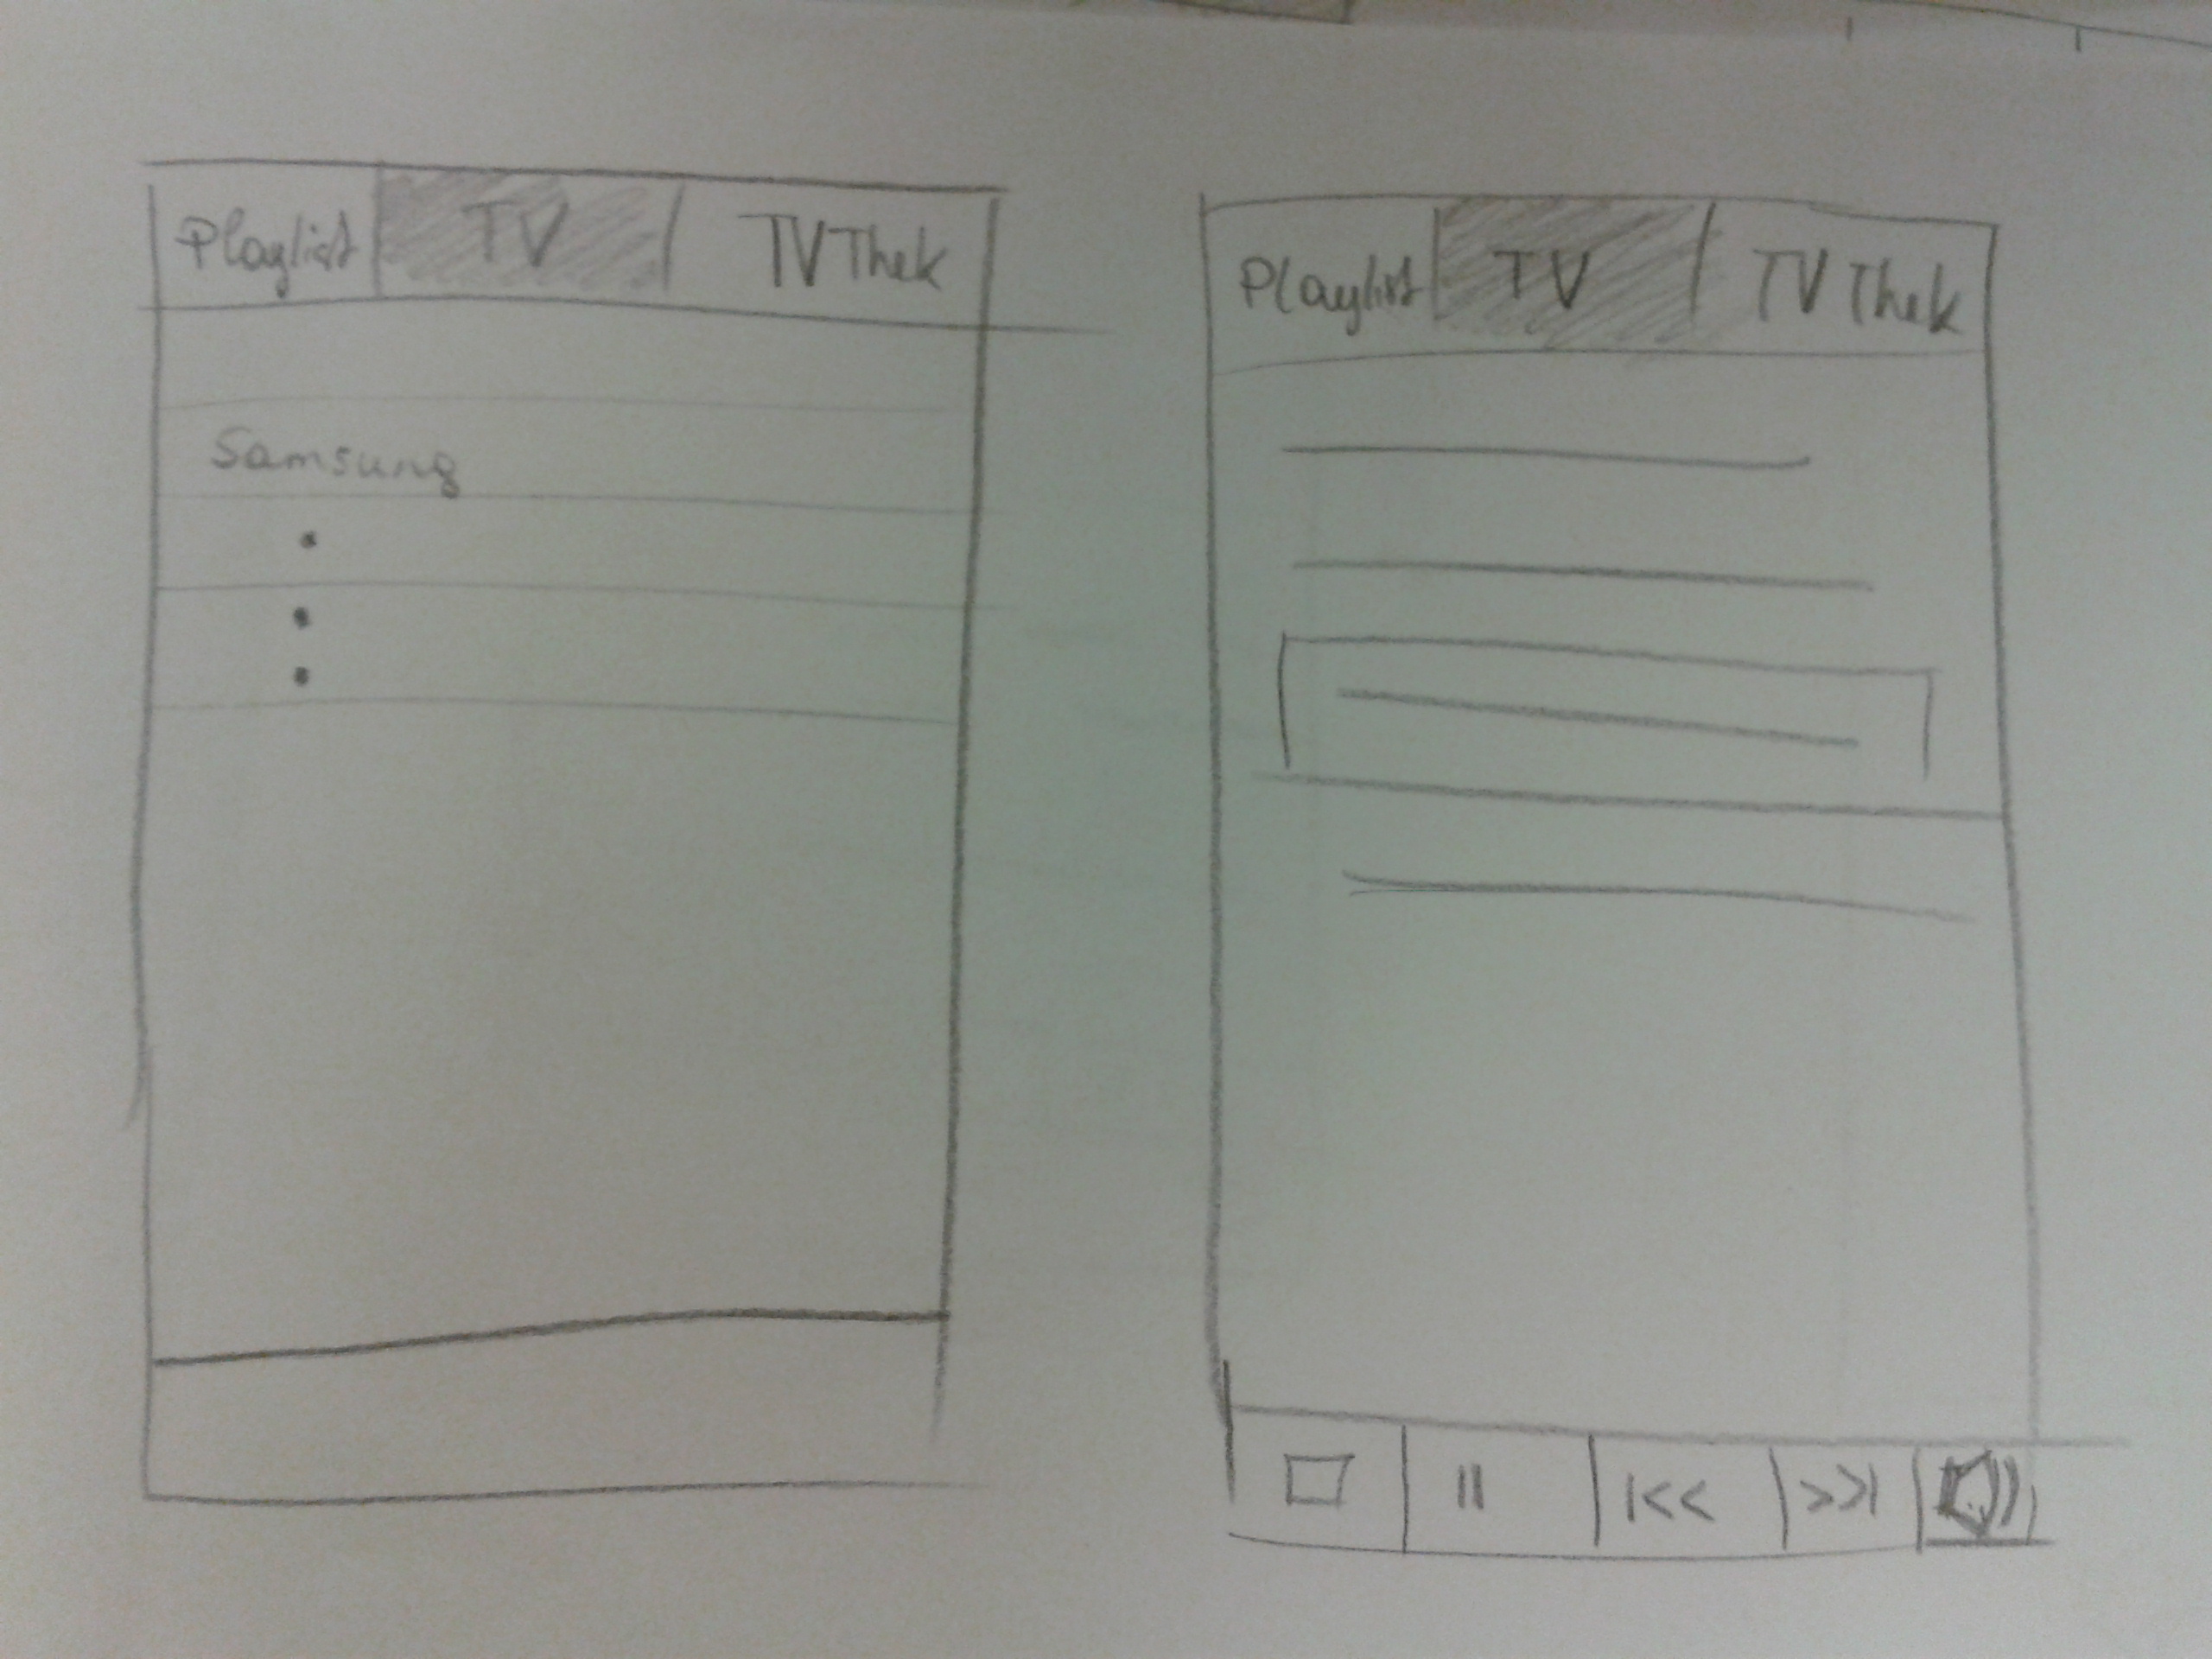 Playlist TV TV Thek
Samsung
Playlist TV TV Thek